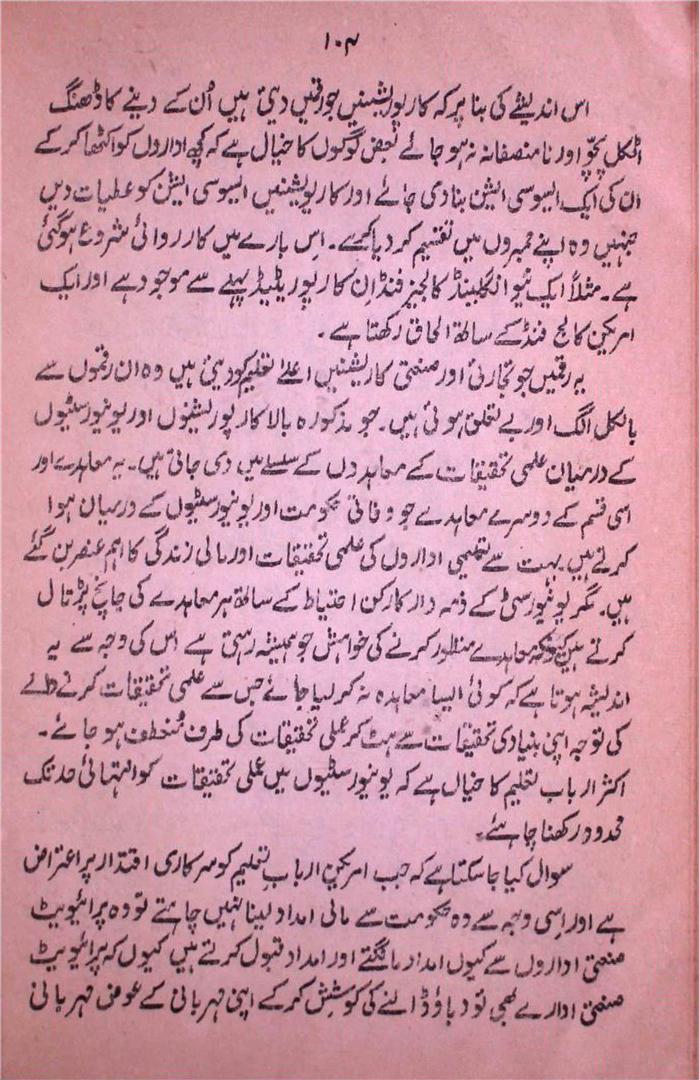 ۱۰۴
اس اندیشے کی بنا پر کہ کارپوریشنیں جو رقمیں دیتی ہیں اُن کے دینے کا ڈھنگ
اٹکل پچّو اور نا منصفانہ نہ ہو جائے بعض لوگوں کا خیال ہے کہ کچھ اداروں کو اکٹھا کر کے
ان کی ایک ایسوسی ایشن بنا دی جائے اور کارپوریشنیں ایسوسی ایشن کو عطیات دیں
جنہیں وہ اپنے ممبروں میں تقسیم کر دیا کرے۔ اس بارے میں کارروائی شروع ہو گئی
ہے۔ مثلاً ایک نیو انگلینڈ کالجیز فنڈ اِن کارپوریٹیڈ پہلے سے موجود ہے اور ایک
امریکن کالج فنڈ کے ساتھ الحاق رکھتا ہے۔
یہ رقمیں جو تجارتی اور صنعتی کارپیشنیں اعلےٰ تعلیم کو دیتی ہیں وہ ان رقموں سے
بالکل الگ اور بے تعلق ہوتی ہیں۔ جو مذکورہ بالا کارپوریشنوں اور یونیورسٹیوں
کے درمیان علمی تحقیقات کے معاہدوں کے سلسلے میں دی جاتی ہیں۔ یہ معاہدے اور
اسی قسم کے دوسرے معاہدے جو وفاقی حکومت اور یونیورسٹیوں کے درمیان ہوا
کرتے ہیں بہت سے تعلیمی اداروں کی علمی تحقیقات اور مالی زندگی کا اہم عنصر بن گئے
ہیں۔ مگر یونیورسٹی کے ذمہ دار کارکن احتیاط کے ساتھ ہر معاہدے کی جانچ پڑتال
کرتے ہیں کیونکہ معاہدے منظور کرنے کی خواہش جو ہمیشہ رہتی ہے اس کی وجہ سے یہ
اندیشہ ہوتا ہے کہ کوئی ایسا معاہدہ نہ کر لیا جائے جس سے علمی تحقیقات کرنے والے
کی توجہ اپنی بنیادی تحقیقات سے ہٹ کر عملی تحقیقات کی طرف مُنعطف ہو جائے۔
اکثر ارباب تعلیم کا خیال ہے کہ یونیورسٹیوں میں عملی تحقیقات کو انتہائی حد تک
محدود رکھنا چاہئے۔
سوال کیا جا سکتا ہے کہ جب امریکن اربابِ تعلیم کو سرکاری اقتدار پر اعتراض
ہے اور اِسی وجہ سے وہ حکومت سے مالی امداد لینا نہیں چاہتے تو وہ پرائیویٹ
صنعتی اداروں سے کیوں امداد مانگتے اور امداد قبول کرتے ہیں کیوں کہ پرائیویٹ
صنعتی ادارے بھی تو دباؤ ڈالنے کی کوشش کر کے اپنی مہربانی کے عوض مہربانی